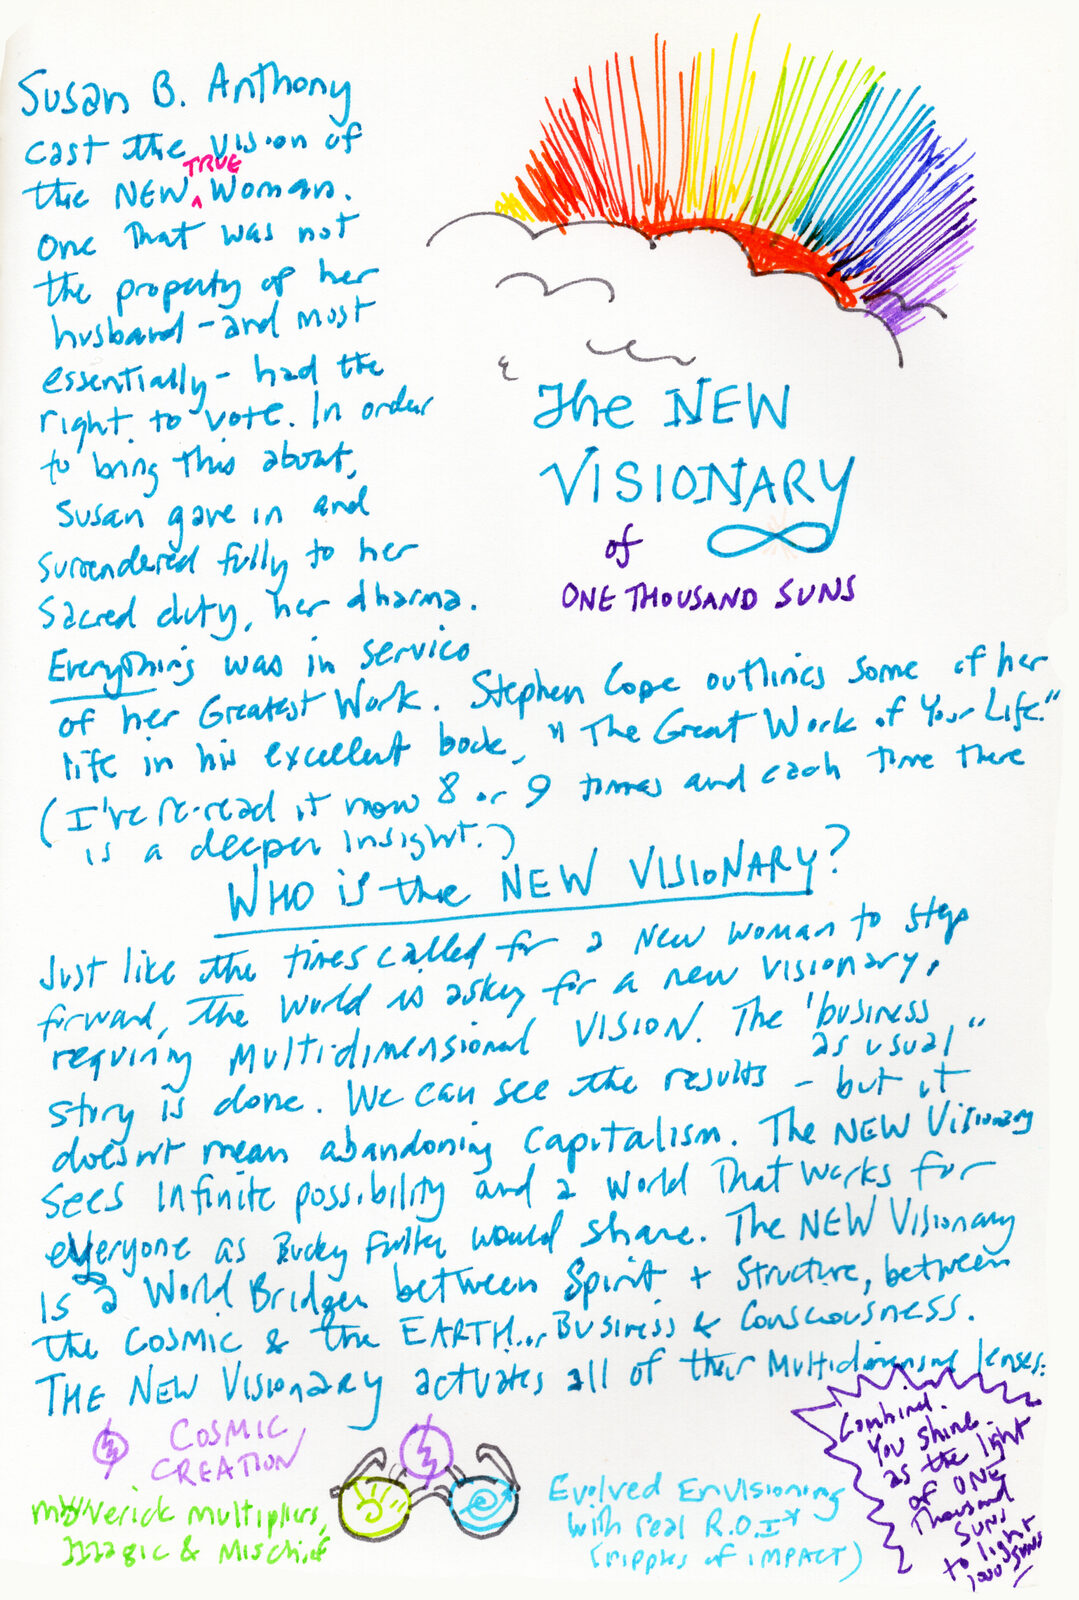 Susan B. Anthony
cast the vision of
TRUE
the NEW ^ Woman.
One That was not
the property of her
husband - and most
essentially - had the
right to vote. In order
to bring this about,
Susan gave in and
surrendered fully to her
sacred duty, her dharma.
Everything was in service
of her Greatest Work. Stephen Cope outlines some of her
life in his excellent book, "The Great Work of Your Life."
(I've re-read it now 8 or 9 times and each time there
is a deeper insight.)
The NEW
VISIONARY
of
ONE THOUSAND SUNS
WHO is the NEW VISIONARY?
Just like the times called for a New Woman to step
forward, the world is asking for a new visionary,
requiring Multidimensional VISION. The 'business
as usual"
story is done. We can see the results - but it
doesn't mean abandoning Capitalism. The NEW Visionary
sees infinite possibility and a world That works for
everyone as Bucky Fuller would share. The NEW Visionary
is a World Bridger between Spirit + Structure, between
the COSMIC & the EARTH... Business & Consciousness.
THE NEW Visionary actuates all of their Multidimensional lenses:
COSMIC
CREATION
Maverick Multipliers,
Magic & Mischief
Evolved Envisioning
with real R.O.I*
(ripples of IMPACT)
Combined.
You shine
as the light
of ONE
Thousand
Suns
to light
1000 Suns